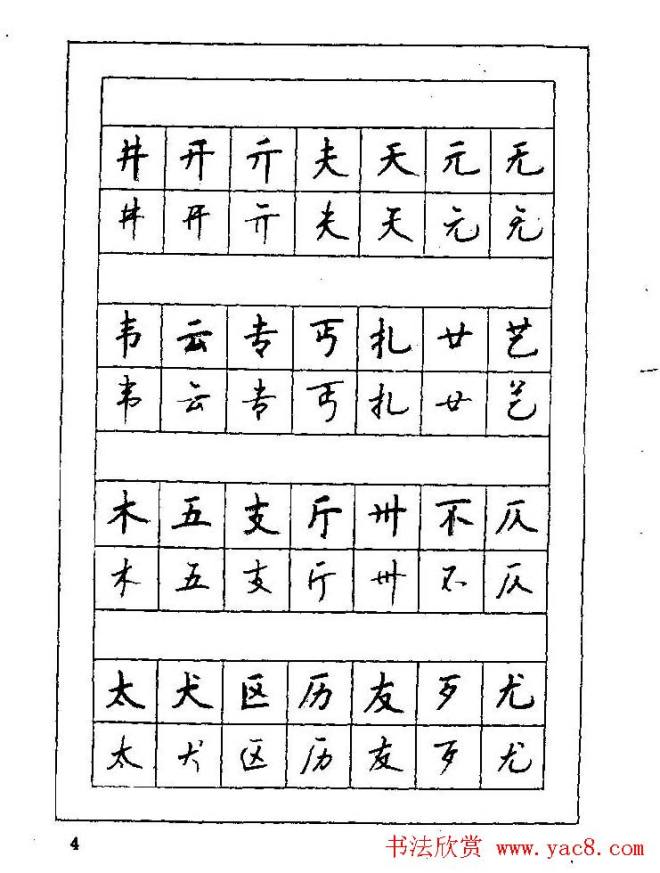 井 开 亓 夫 天 元 无
井 开 亓 夫 天 元 无
韦 云 专 丐 扎 廿 艺
韦 云 专 丐 扎 廿 艺
木 五 支 斤 卅 不 仄
木 五 支 斤 卅 不 仄
太 犬 区 历 友 歹 尤
太 犬 区 历 友 歹 尤
4
书法欣赏 www.yac8.com